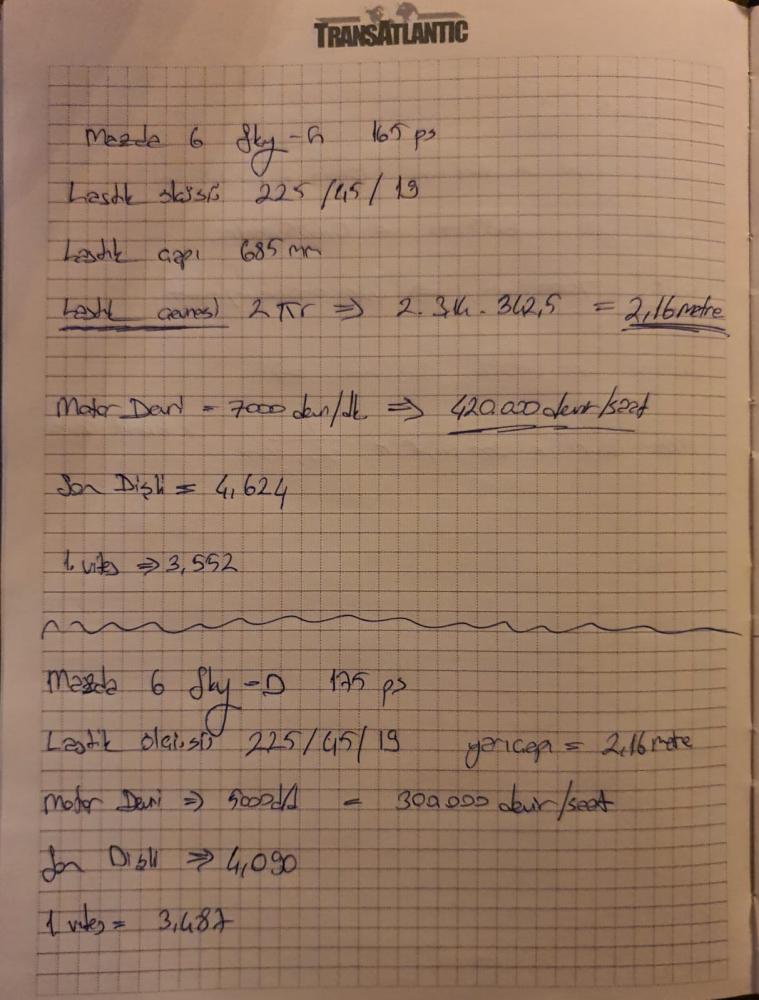 TRANSATLANTIC
Mazda 6 Sky-G 165 ps
Lastik ölçüsü 225/45/19
Lastik çapı 685 mm
Lastik çevresi 2πr ⇒ 2. 3,14 . 342,5 = 2,16 metre
Motor Devri = 7000 devir/dk ⇒ 420.000 devir/saat
Son Dişli = 4,624
1. vites ⇒ 3,552
Mazda 6 Sky-D 175 ps
Lastik ölçüsü 225/45/19 yarıçapı = 2,16 metre
Motor Devri ⇒ 5000 d/d = 300.000 devir/saat
Son Dişli ⇒ 4,090
1 vites = 3,487